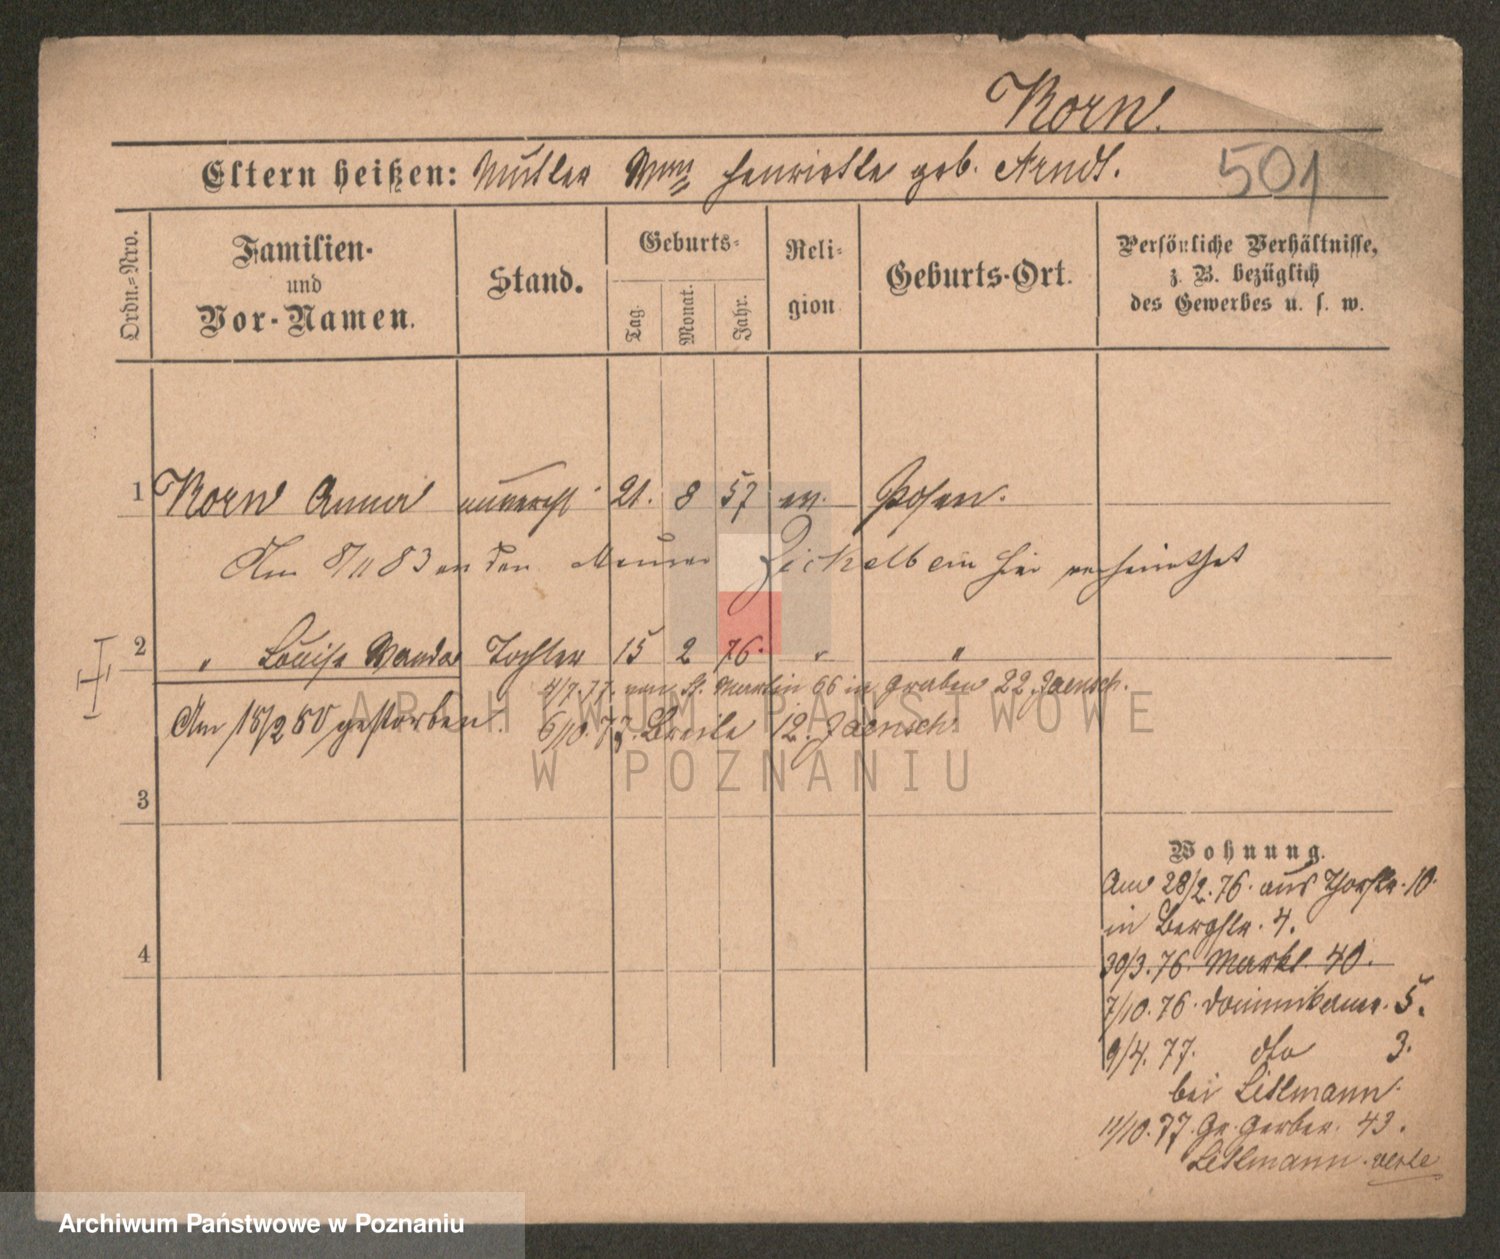 Korn.
Eltern heißen: Mutter Wwe Henriette geb. Arndt.
501
Ordn.-Nro.
Familien-
und
Vor-Namen.
Stand.
Geburts-
Tag.
Monat.
Jahr.
Reli-
gion
Geburts-Ort.
Persönliche Verhältnisse,
z. B. bezüglich
des Gewerbes u. s. w.
1 Korn Anna unvereh. 21. 8 57 ev. Posen.
Am 8/11 83 an den Maurer Zickelbein hier verheirathet
2 " Louise Wanda Tochter 15 2 76. " "
4/7. 77. von St. Martin 66 in Graben 22 Jaensch.
Am 18/2 80 gestorben.
6/10. 77. Breite 12. Jaensch.
3
4
Wohnung.
Am 28/2. 76. aus Thorstr. 10.
in Bergstr. 4.
30/3. 76. Markt. 40.
7/10. 76. Dominikaner. 5.
9/4. 77. dto 3.
bei Litlmann
11/10. 77. Gr. Gerber. 43.
Litlmann.
ARCHIWUM PAŃSTWOWE
W POZNANIU
Archiwum Państwowe w Poznaniu